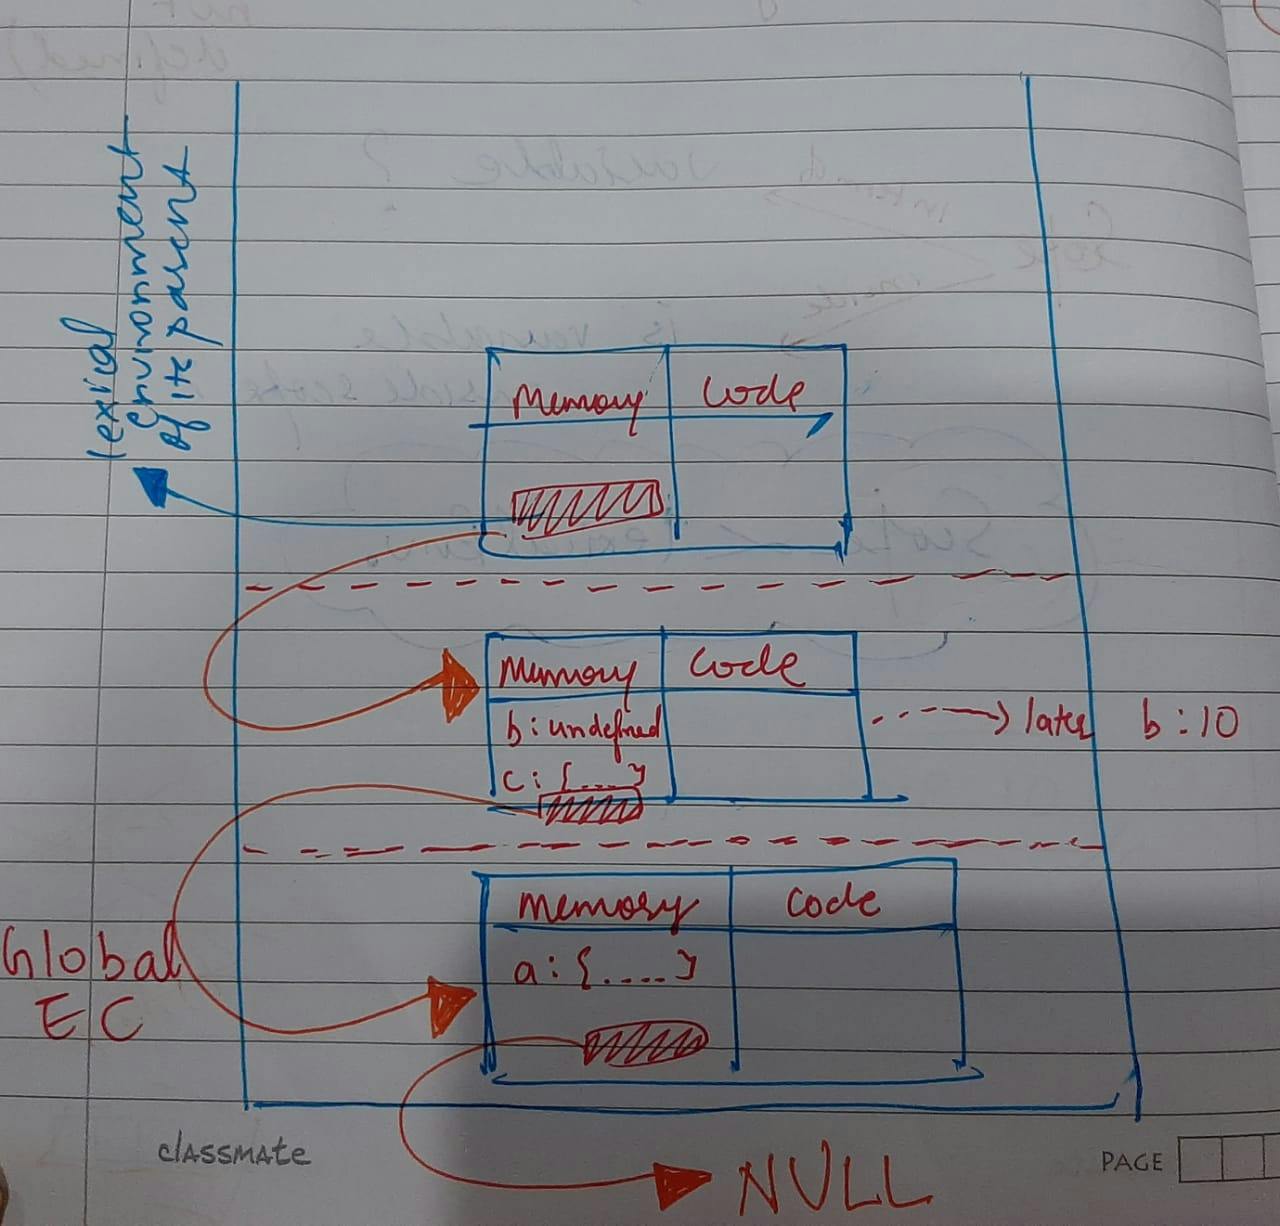 lexical
environment
of its parent
Memory
Code
Memory
Code
b: undefined
c: {....}
later b:10
Global
EC
Memory
Code
a: {.....}
NULL
classmate
PAGE